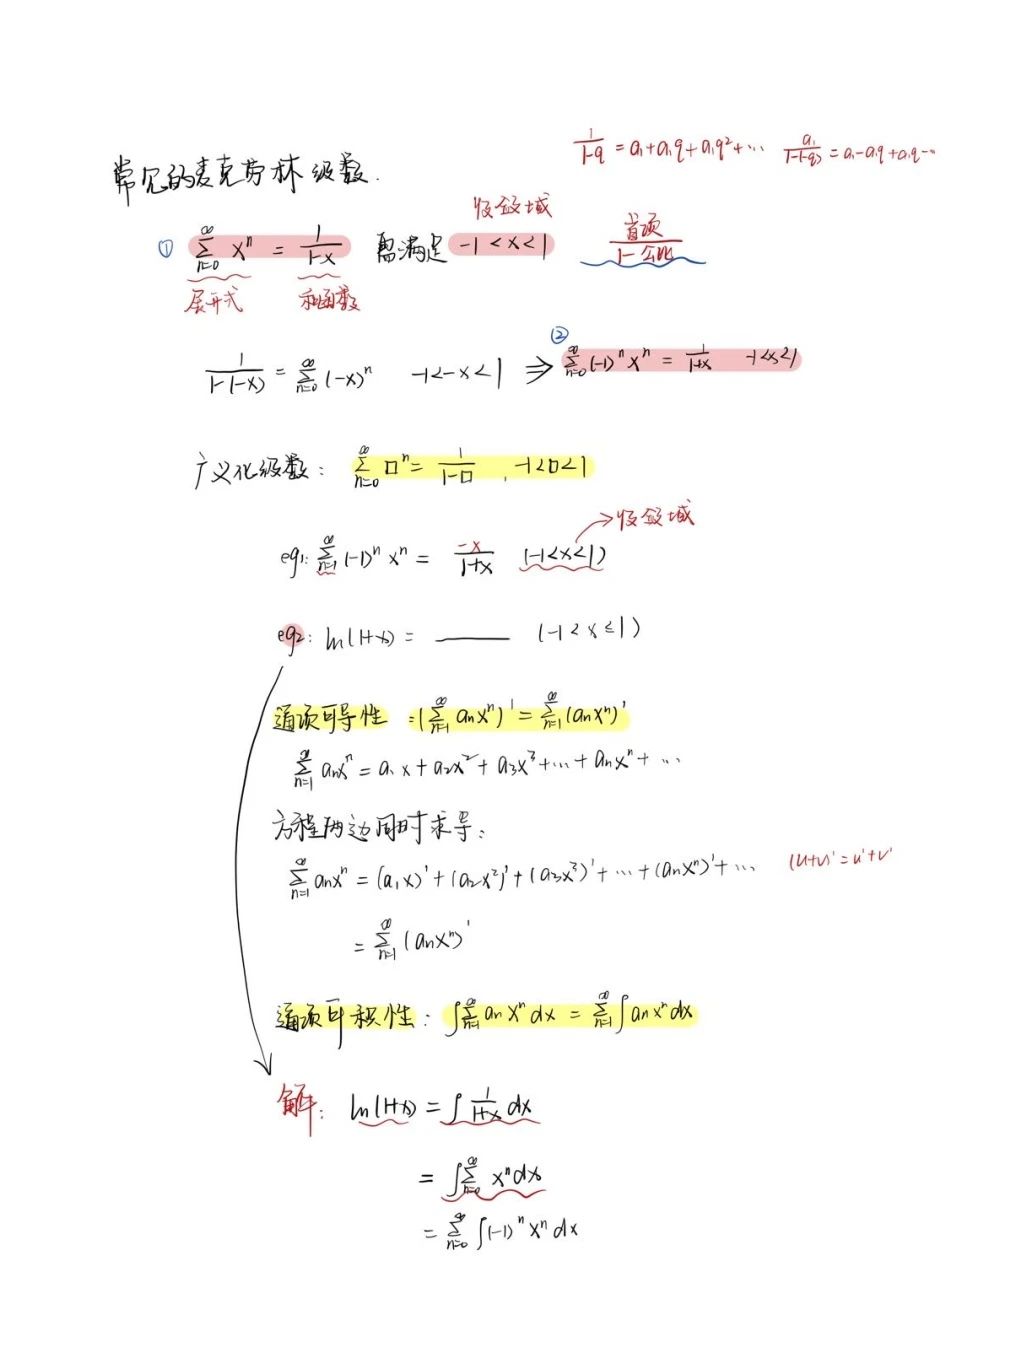 1/(1-q) = a₁+a₁q+a₁q²+… a₁/(1-(-q)) = a₁-a₁q+a₁q-…
常见的麦克劳林级数.
收敛域
① ∑_{n=0}^{∞} xⁿ = 1/(1-x) 需满足 -1<x<1 首项/(1-公比)
展开式 和函数
②
1/(1-(-x)) = ∑_{n=0}^{∞} (-x)ⁿ -1<-x<1 ⇒ ∑_{n=0}^{∞} (-1)ⁿxⁿ = 1/(1+x) -1<x<1
广义化级数: ∑_{n=0}^{∞} □ⁿ = 1/(1-□) , -1<□<1
→收敛域
eg1: ∑_{n=1}^{∞} (-1)ⁿxⁿ = -x/(1+x) (-1<x<1)
eg2: ln(1+x) = ____ (-1<x≤1)
逐项可导性 =(∑_{n=1}^{∞} aₙxⁿ)' = ∑_{n=1}^{∞} (aₙxⁿ)'
∑_{n=1}^{∞} aₙxⁿ = a₁x+a₂x²+a₃x³+…+aₙxⁿ+…
方程两边同时求导:
∑_{n=1}^{∞} aₙxⁿ = (a₁x)'+(a₂x²)'+(a₃x³)'+…+(aₙxⁿ)'+… (u+v)'=u'+v'
= ∑_{n=1}^{∞} (aₙxⁿ)'
逐项可积性: ∫∑_{n=1}^{∞} aₙxⁿdx = ∑_{n=1}^{∞} ∫aₙxⁿdx
解: ln(1+x) = ∫ 1/(1+x) dx
= ∫∑_{n=0}^{∞} xⁿdx
= ∑_{n=0}^{∞} ∫(-1)ⁿxⁿdx